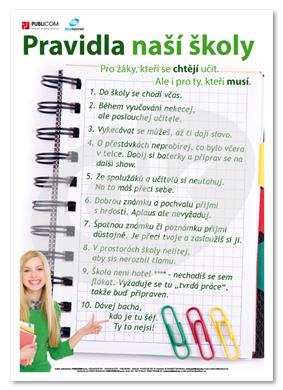 PUBLICOM
Pravidla naší školy
Pro žáky, kteří se chtějí učit.
Ale i pro ty, kteří musí.
1. Do školy se chodí včas.
2. Během vyučování nekecej,
ale poslouchej učitele.
3. Vykecávat se můžeš, až ti dají slovo.
4. O přestávkách neprobírej, co bylo včera
v telce. Dobij si baterky a připrav se na
další show.
5. Ze spolužáků a učitelů si neutahuj.
Na to máš přeci sebe.
6. Dobrou známku a pochvalu přijmi
s hrdostí. Aplaus ale nevyžaduj.
7. Špatnou známku či poznámku přijmi
důstojně. Je přeci tvoje a zasloužíš si ji.
8. V prostorách školy nelítej,
aby sis nerozbil tlamu.
9. Škola není hotel **** - nechodíš se sem
flákat. Vyžaduje se tu „tvrdá práce“,
takže buď připraven.
10. Dávej bacha,
kdo je tu šéf.
Ty to nejsi!